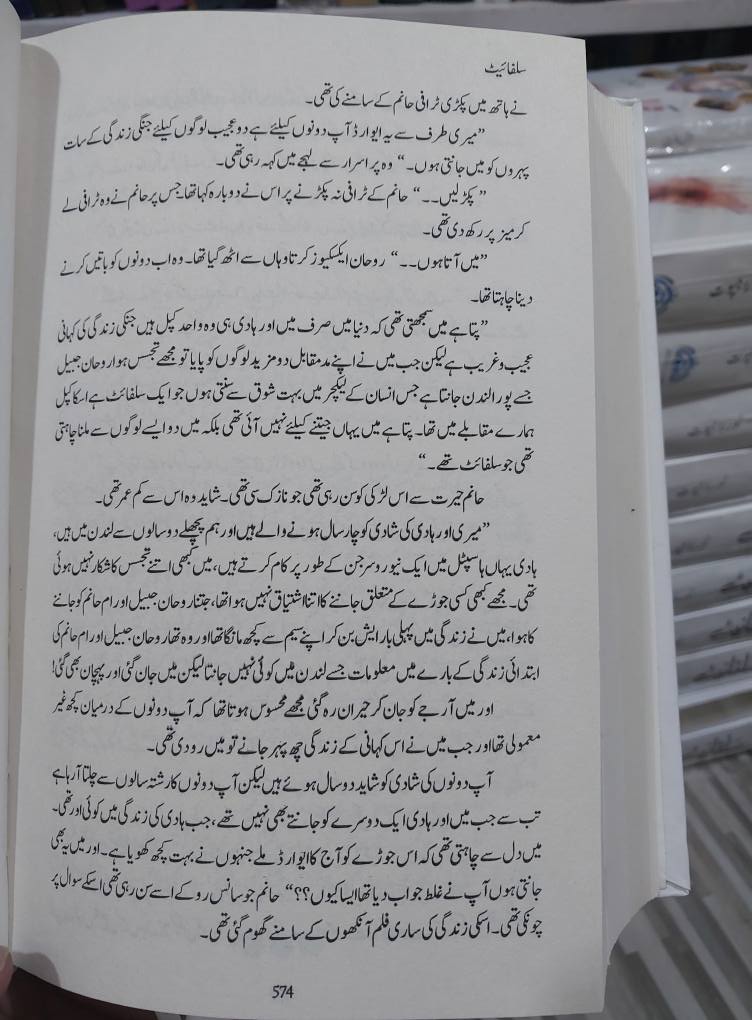 سلفائیٹ
نے ہاتھ میں پکڑی ٹرافی حانم کے سامنے کی تھی۔
”میری طرف سے یہ ایوارڈ آپ دونوں کیلئے ہے دو عجیب لوگوں کیلئے جنکی زندگی کے سات
پہروں کو میں جانتی ہوں۔“ وہ پراسرار سے لہجے میں کہہ رہی تھی۔
”پکڑ لیں۔۔“ حانم کے ٹرافی نہ پکڑنے پر اس نے دوبارہ کہا تھا جس پر حانم نے وہ ٹرافی لے
کر میز پر رکھ دی تھی۔
”میں آتا ہوں۔۔“ روحان ایکسکیوز کرتا وہاں سے اٹھ گیا تھا۔ وہ اب دونوں کو باتیں کرنے
دینا چاہتا تھا۔
”پتا ہے میں سمجھتی تھی کہ دنیا میں صرف میں اور ہادی ہی وہ واحد کپل ہیں جنکی زندگی کی کہانی
عجیب و غریب ہے لیکن جب میں نے اپنے مدمقابل دو مزید لوگوں کو پایا تو مجھے تجسس ہوا روحان جبیل
جسے پورا لندن جانتا ہے جس انسان کے لیکچر میں بہت شوق سے سنتی ہوں جو ایک سلفائٹ ہے اسکا کپل
ہمارے مقابلے میں تھا۔ پتا ہے میں یہاں جیتنے کیلئے نہیں آئی تھی بلکہ میں دو ایسے لوگوں سے ملنا چاہتی
تھی جو سلفائٹ تھے۔“
حانم حیرت سے اس لڑکی کو سن رہی تھی جو نازک سی تھی۔ شاید وہ اس سے کم عمر تھی۔
”میری اور ہادی کی شادی کو چار سال ہونے والے ہیں اور ہم پچھلے دو سالوں سے لندن میں ہیں،
ہادی یہاں ہاسپٹل میں ایک نیوروسرجن کے طور پر کام کرتے ہیں، میں کبھی اتنے تجسس کا شکار نہیں ہوئی
تھی۔ مجھے کبھی کسی جوڑے کے متعلق جاننے کا اتنا اشتیاق نہیں ہوا تھا، جتنا روحان جبیل اور ام حانم کو جاننے
کا ہوا، میں نے زندگی میں پہلی بار ایش بن کر اپنے سیم سے کچھ مانگا تھا اور وہ تھا روحان جبیل اور ام حانم کی
ابتدائی زندگی کے بارے میں معلومات جسے لندن میں کوئی نہیں جانتا لیکن میں جان گئی اور پہچان بھی گئی!
اور میں آرجے کو جان کر حیران رہ گئی مجھے محسوس ہوتا تھا کہ آپ دونوں کے درمیان کچھ غیر
معمولی تھا اور جب میں نے اس کہانی کے زندگی چھ پہر جانے تو میں رو دی تھی۔
آپ دونوں کی شادی کو شاید دو سال ہوئے ہیں لیکن آپ دونوں کا رشتہ سالوں سے چلتا آرہا ہے
تب سے جب میں اور ہادی ایک دوسرے کو جانتے بھی نہیں تھے، جب ہادی کی زندگی میں کوئی اور تھی۔
میں دل سے چاہتی تھی کہ اس جوڑے کو آج کا ایوارڈ ملے جنہوں نے بہت کچھ کھویا ہے۔ اور میں یہ بھی
جانتی ہوں آپ نے غلط جواب دیا تھا ایسا کیوں؟؟“ حانم جو سانس روکے اسے سن رہی تھی اسکے سوال پر
چونکی تھی۔ اسکی زندگی کی ساری فلم آنکھوں کے سامنے گھوم گئی تھی۔
574